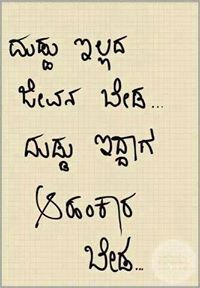 ದುಡ್ಡು ಇಲ್ಲದ
ಜೀವನ ಬೇಡ...
ದುಡ್ಡು ಇದ್ದಾಗ
ಅಹಂಕಾರ
ಬೇಡ...